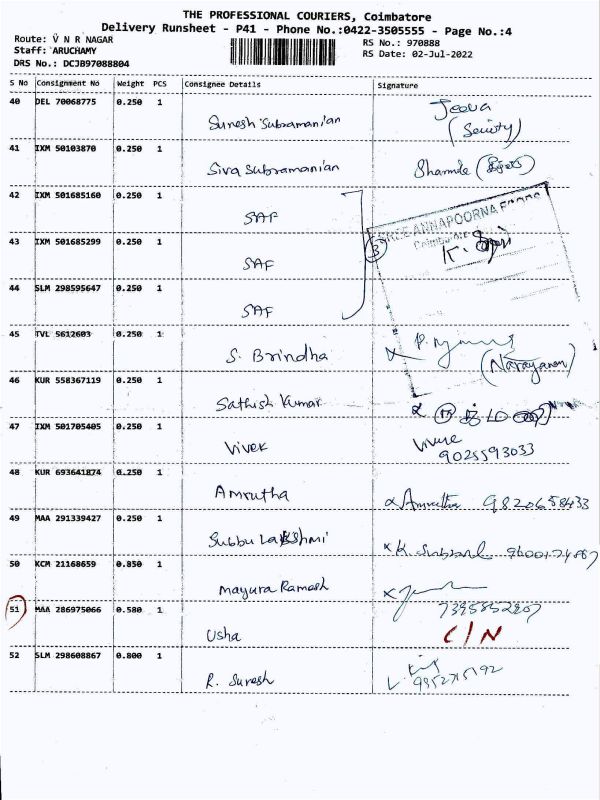 THE PROFESSIONAL COURIERS, Coimbatore
Delivery Runsheet - P41 - Phone No.:0422-3505555 - Page No.:4
Route: V N R NAGAR
RS No.: 970888
Staff: ARUCHAMY
RS Date: 02-Jul-2022
DRS No.: DCJB97088804
S No Consignment No Weight PCS Consignee Details Signature
40 DEL 70068775 0.250 1 Suresh Subramanian Jeeva
(Seciety)
41 IXM 50103870 0.250 1 Siva Subramanian Sharmile
42 IXM 501685160 0.250 1 SAF
SREE ANNAPOORNA FOODS
Coimbatore
43 IXM 501685299 0.250 1 SAF 3 K.
44 SLM 298595647 0.250 1 SAF
45 TVL 5612603 0.250 1 S. Brindha P.
(Narayanan)
46 KUR 558367119 0.250 1 Sathish Kumar
47 IXM 501705405 0.250 1 Vivek
9025593033
48 KUR 693641874 0.250 1 Amrutha Amrutha 9820658433
49 MAA 291339427 0.250 1 Subbu Lakshmi K.
50 KCM 21168659 0.850 1 Mayura Ramesh
51 MAA 286975066 0.580 1 Usha C/N
52 SLM 298608867 0.800 1 R. Suresh